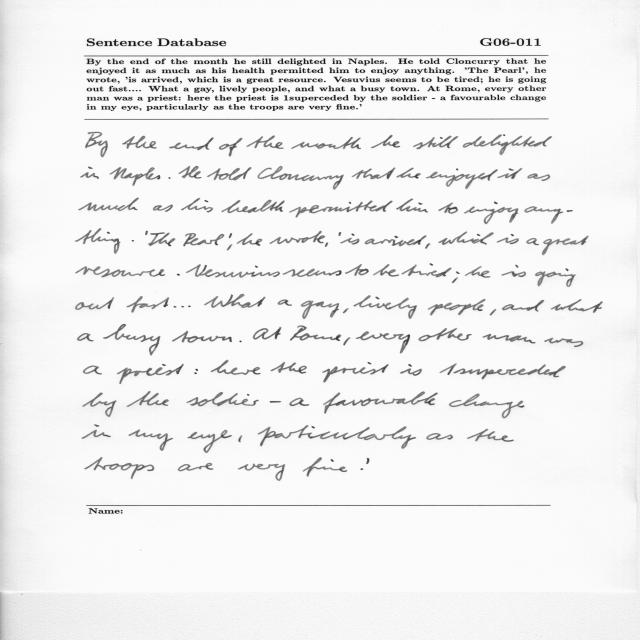 Sentence Database G06-011
By the end of the month he still delighted in Naples. He told Cloncurry that he
enjoyed it as much as his health permitted him to enjoy anything. 'The Pearl', he
wrote, 'is arrived, which is a great resource. Vesuvius seems to be tired; he is going
out fast.... What a gay, lively people, and what a busy town. At Rome, every other
man was a priest: here the priest is 1superceded by the soldier - a favourable change
in my eye, particularly as the troops are very fine.'
By the end of the month he still delighted
in Naples. He told Cloncurry that he enjoyed it as
much as his health permitted him to enjoy any-
thing. 'The Pearl', he wrote, 'is arrived, which is a great
resource. Vesuvius seems to be tired; he is going
out fast... What a gay, lively people, and what
a busy town. At Rome, every other man was
a priest: here the priest is 1superceded
by the soldier - a favourable change
in my eye, particularly as the
troops are very fine.'
Name: